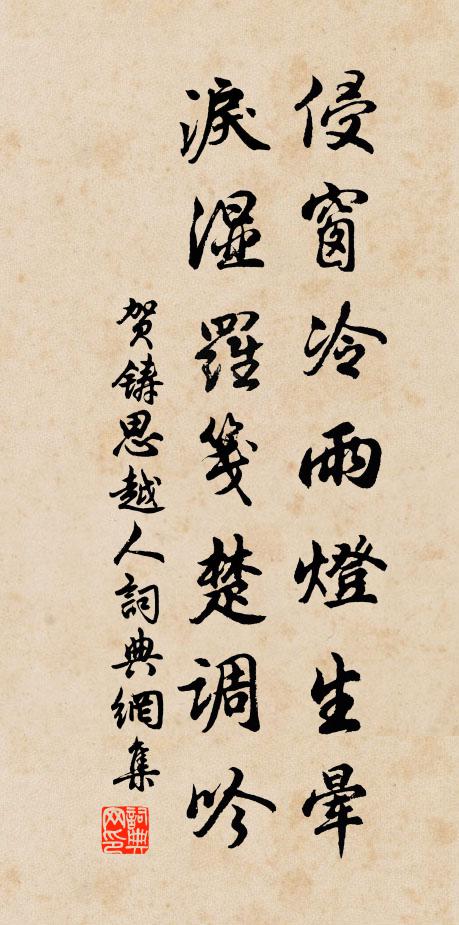 侵窗冷雨燈生暈
淚濕羅箋楚調吟
賀鑄思越人詞典網集
詞典網印